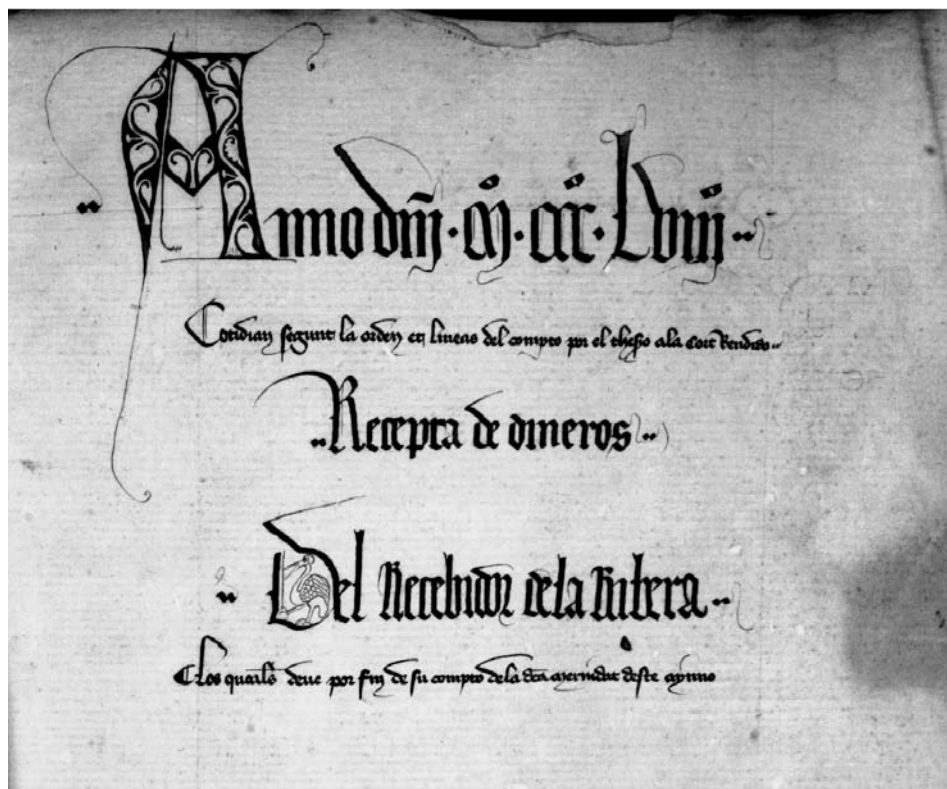 Anno dnj · mº · cccº · Lviijº
Cotidian segunt la orden et lineas del compto por el theso a la Cort Rendido
Recepta de dineros
Del Recebidor de la Ribera
Los quales deve por fin de su compto de la dca merindat deste aynno